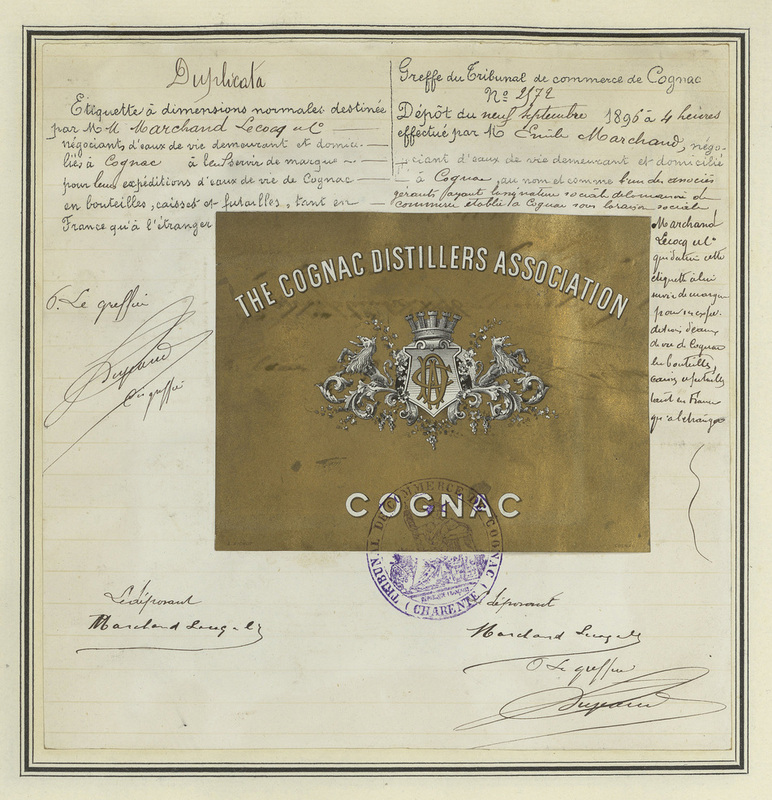 Duplicata
Etiquette à dimensions normales destinée
par MM Marchand Lecocq et Cⁱᵉ
négociants d'eaux de vie demeurant et domici-
liés à Cognac à leur servir de marque
pour leurs expéditions d'eaux de vie de Cognac
en bouteilles, caisses et futailles, tant en
France qu'à l'étranger
Le greffier
Greffe du Tribunal de commerce de Cognac
Nº 2172
Dépôt du neuf Septembre 1896 à 4 heures
effectué par M. Emile Marchand, négo-
ciant d'eaux de vie demeurant et domicilié
à Cognac, au nom et comme l'un des associés
gérants ayant la signature sociale de la maison de
commerce établie à Cognac sous la raison sociale
Marchand
Lecocq et Cⁱᵉ
qui destine cette
étiquette à lui
servir de marque
pour ses expé-
ditions d'eaux
de vie de Cognac
en bouteilles,
caisses et futailles
tant en France
qu'à l'étranger
THE COGNAC DISTILLERS ASSOCIATION
COGNAC
TRIBUNAL DE COMMERCE DE COGNAC
(CHARENTE)
Le déposant
Marchand Lecocq & Cie
Le déposant
Marchand Lecocq & Cie
Le greffier